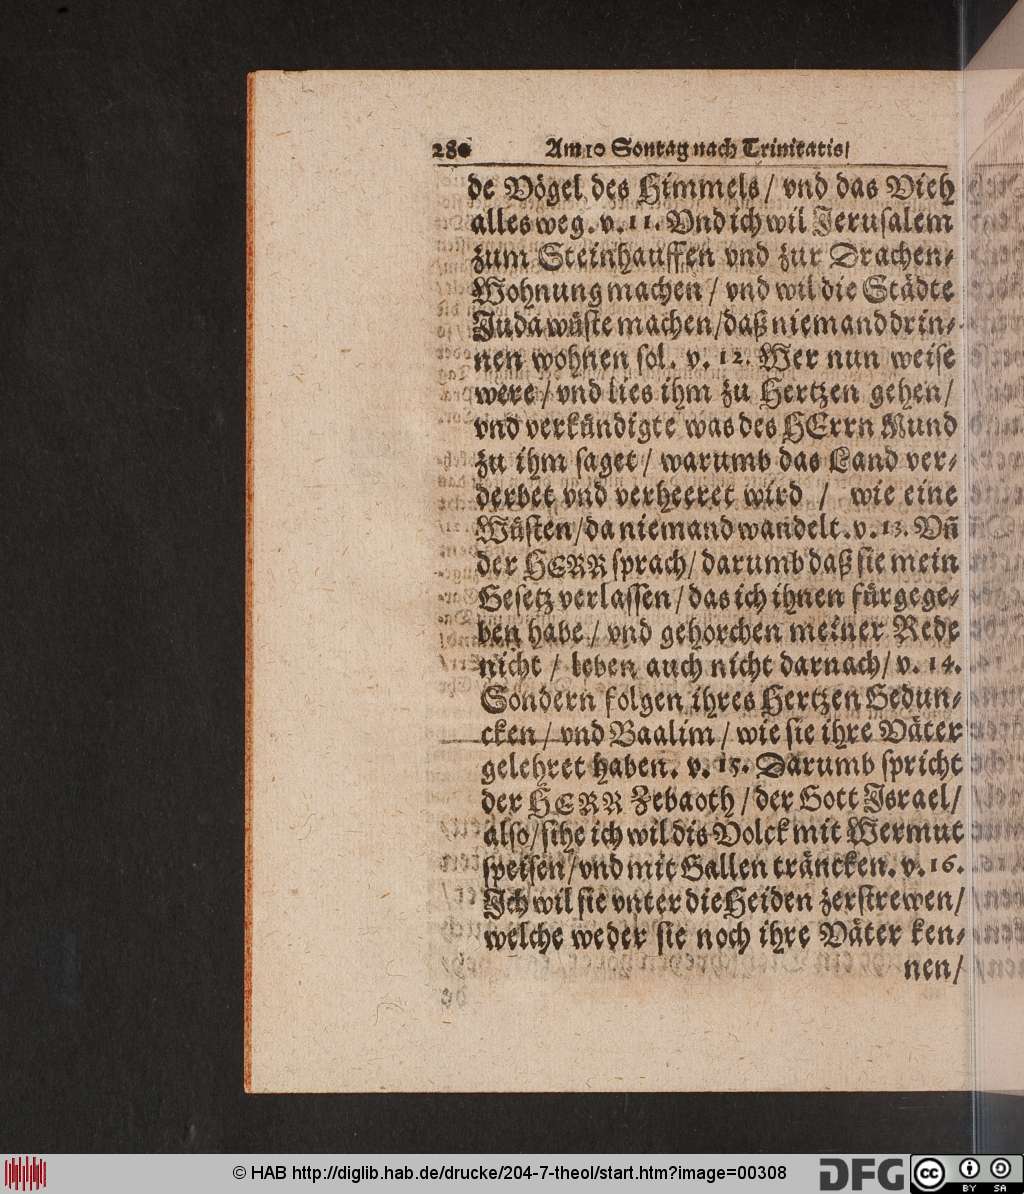 280 Am 10 Sontag nach Trinitatis/
de Vögel des Himmels / vnd das Vieh
alles weg. v. 11. Vnd ich wil Jerusalem
zum Steinhauffen vnd zur Drachen-
Wohnung machen / vnd wil die Städte
Juda wüste machen/daß niemand drin-
nen wohnen sol. v. 12. Wer nun weise
were / vnd lies ihm zu Hertzen gehen/
vnd verkündigte was des HErrn Mund
zu ihm saget / warumb das Land ver-
derbet vnd verheeret wird / wie eine
Wüsten/da niemand wandelt. v. 13. Vñ
der HERR sprach/ darumb daß sie mein
Gesetz verlassen / das ich ihnen fürgege-
ben habe / vnd gehorchen meiner Rede
nicht / leben auch nicht darnach/ v. 14.
Sondern folgen ihres Hertzen Gedun-
cken / vnd Baalim / wie sie ihre Väter
gelehret haben. v. 15. Darumb spricht
der HERR Zebaoth / der Gott Israel/
also/sihe ich wil dis Volck mit Wermut
speisen/vnd mit Gallen träncken. v. 16.
Ich wil sie vnter die Heiden zerstrewen/
welche weder sie noch ihre Väter ken-
nen/
© HAB http://diglib.hab.de/drucke/204-7-theol/start.htm?image=00308
DFG
cc BY SA